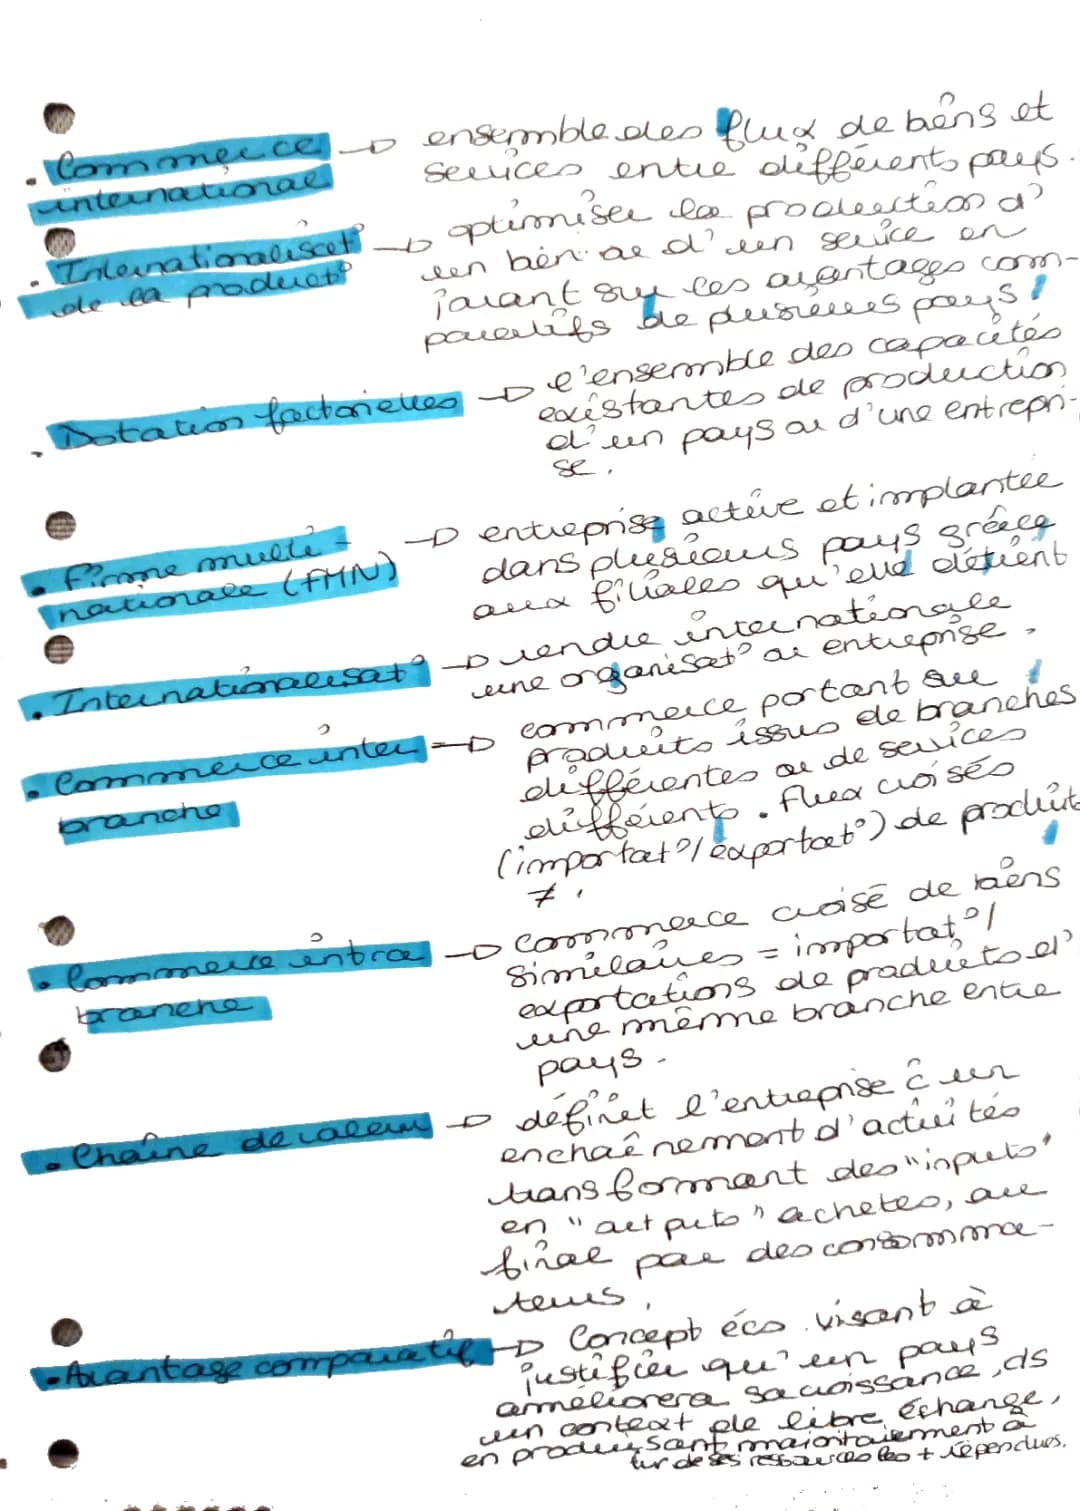 . Commerce → ensemble des flux de biens et
international services entre différents pays.
. Internationalisat° → optimiser la production d'
de la product° un bien ou d'un service en
jouant sur les avantages com-
paratifs de plusieurs pays
. Dotation factorielles → l'ensemble des capacités
existantes de production
d'un pays ou d'une entrepri-
se.
. Firme multi- → entreprise active et implantée
nationale (FMN) dans plusieurs pays grâce
aux filiales qu'elle détient
. Internationalisat° → rendre internationale
une organisat° ou entreprise.
. Commerce inter → commerce portant sur
branche produits issus de branches
différentes ou de services
différents. Flux croisés
(importat°/exportat°) de produits
≠.
. Commerce intra → Commerce croisé de biens
branche similaires = importat°/
exportations de produits d'
une même branche entre
pays.
. Chaîne de valeur → définit l'entreprise ĉ un
enchaînement d'activités
transformant des "inputs"
en "outputs" achetés, au
final par des consomma-
teurs.
. Avantage comparatif → Concept éco. visant à
justifier qu'un pays
améliorera sa croissance, ds
un context de libre échange,
en produisant majoritairement à
de ses ressources les + répendues.